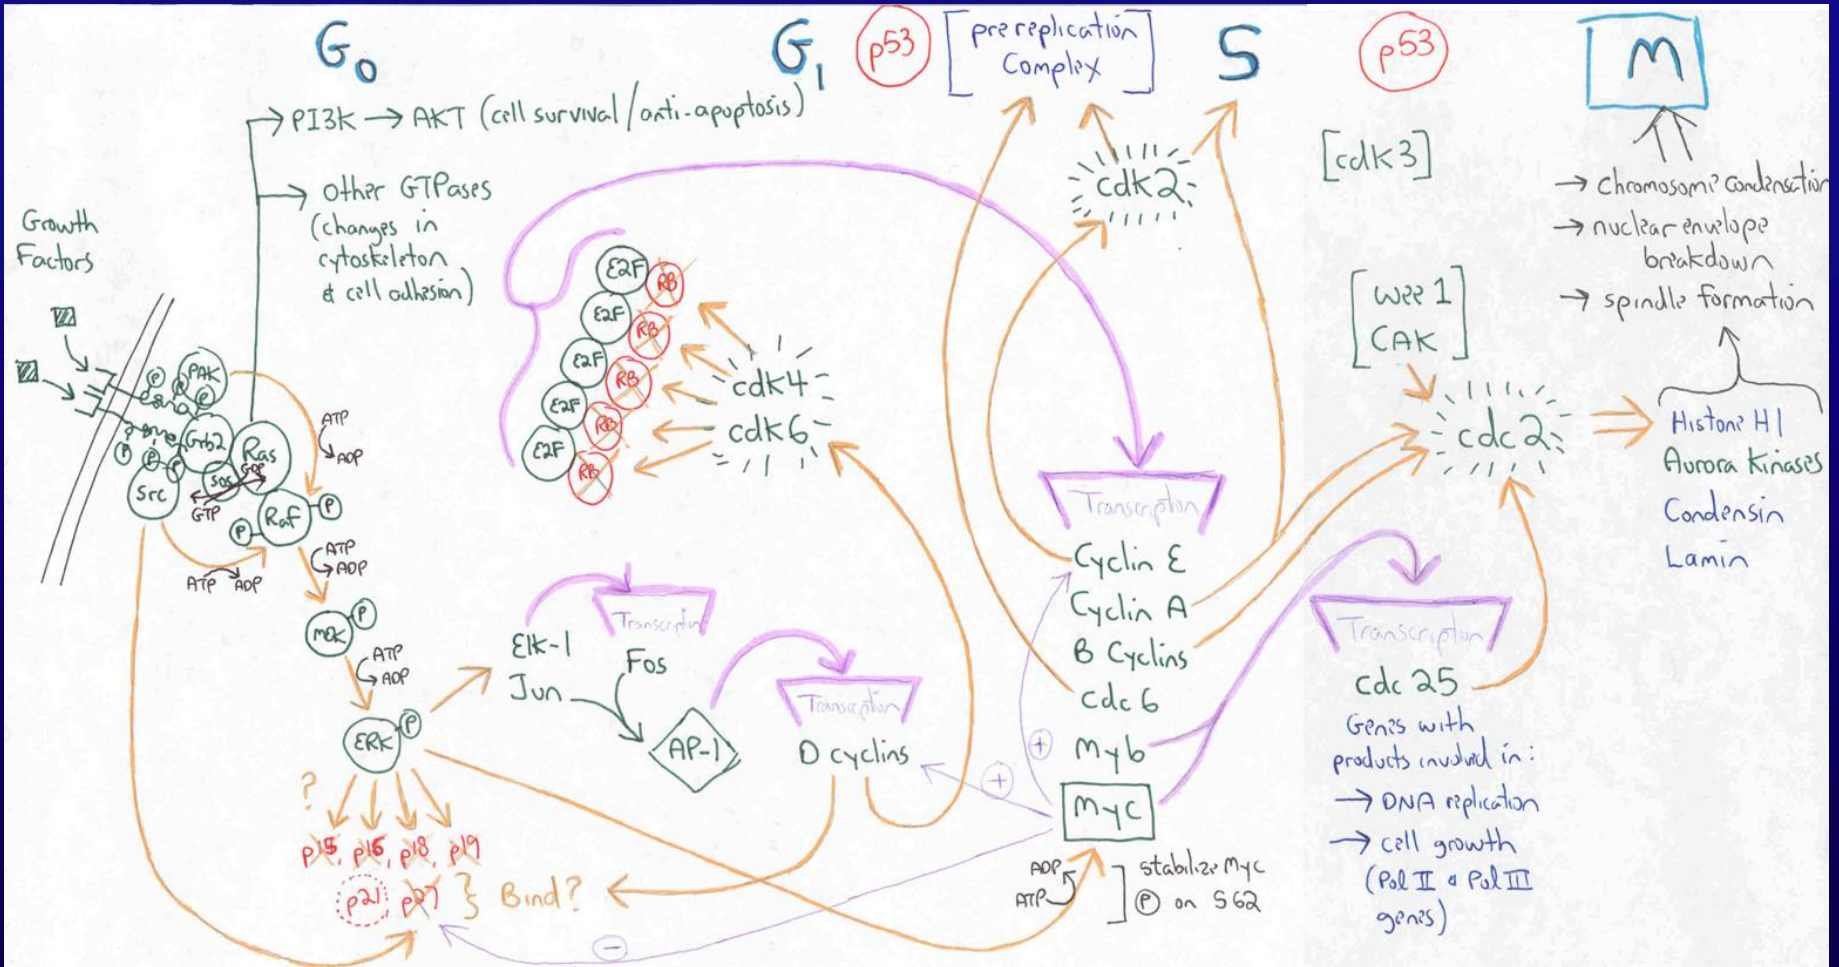 G0
G1
p53
[prereplication
Complex]
S
p53
M
→ PI3K → AKT (cell survival/anti-apoptosis)
→ other GTPases
(changes in
cytoskeleton
& cell adhesion)
Growth
Factors
PAK
P
P
P
Grb2
Ras
SOS
GDP
GTP
Src
P
P
P
Raf
P
P
ATP
ADP
ATP ADP
ATP
ADP
MEK
P
ATP
ADP
ERK
P
?
p15, p16, p18, p19
p21 p27 } Bind?
E2F RB
E2F RB
E2F RB
E2F RB
E2F RB
cdk4
cdk6
Elk-1
Jun
Transcription
Fos
AP-1
Transcription
D cyclins
cdk2
Transcription
Cyclin E
Cyclin A
B Cyclins
cdc6
Myb
Myc
+
+
−
ADP
ATP
stabilize Myc
P on S62
[cdk3]
[wee1
CAK]
cdc2
Transcription
cdc25
Genes with
products involved in:
→ DNA replication
→ cell growth
(Pol II & Pol III
genes)
→ chromosome condensation
→ nuclear envelope
breakdown
→ spindle formation
Histone H1
Aurora Kinases
Condensin
Lamin